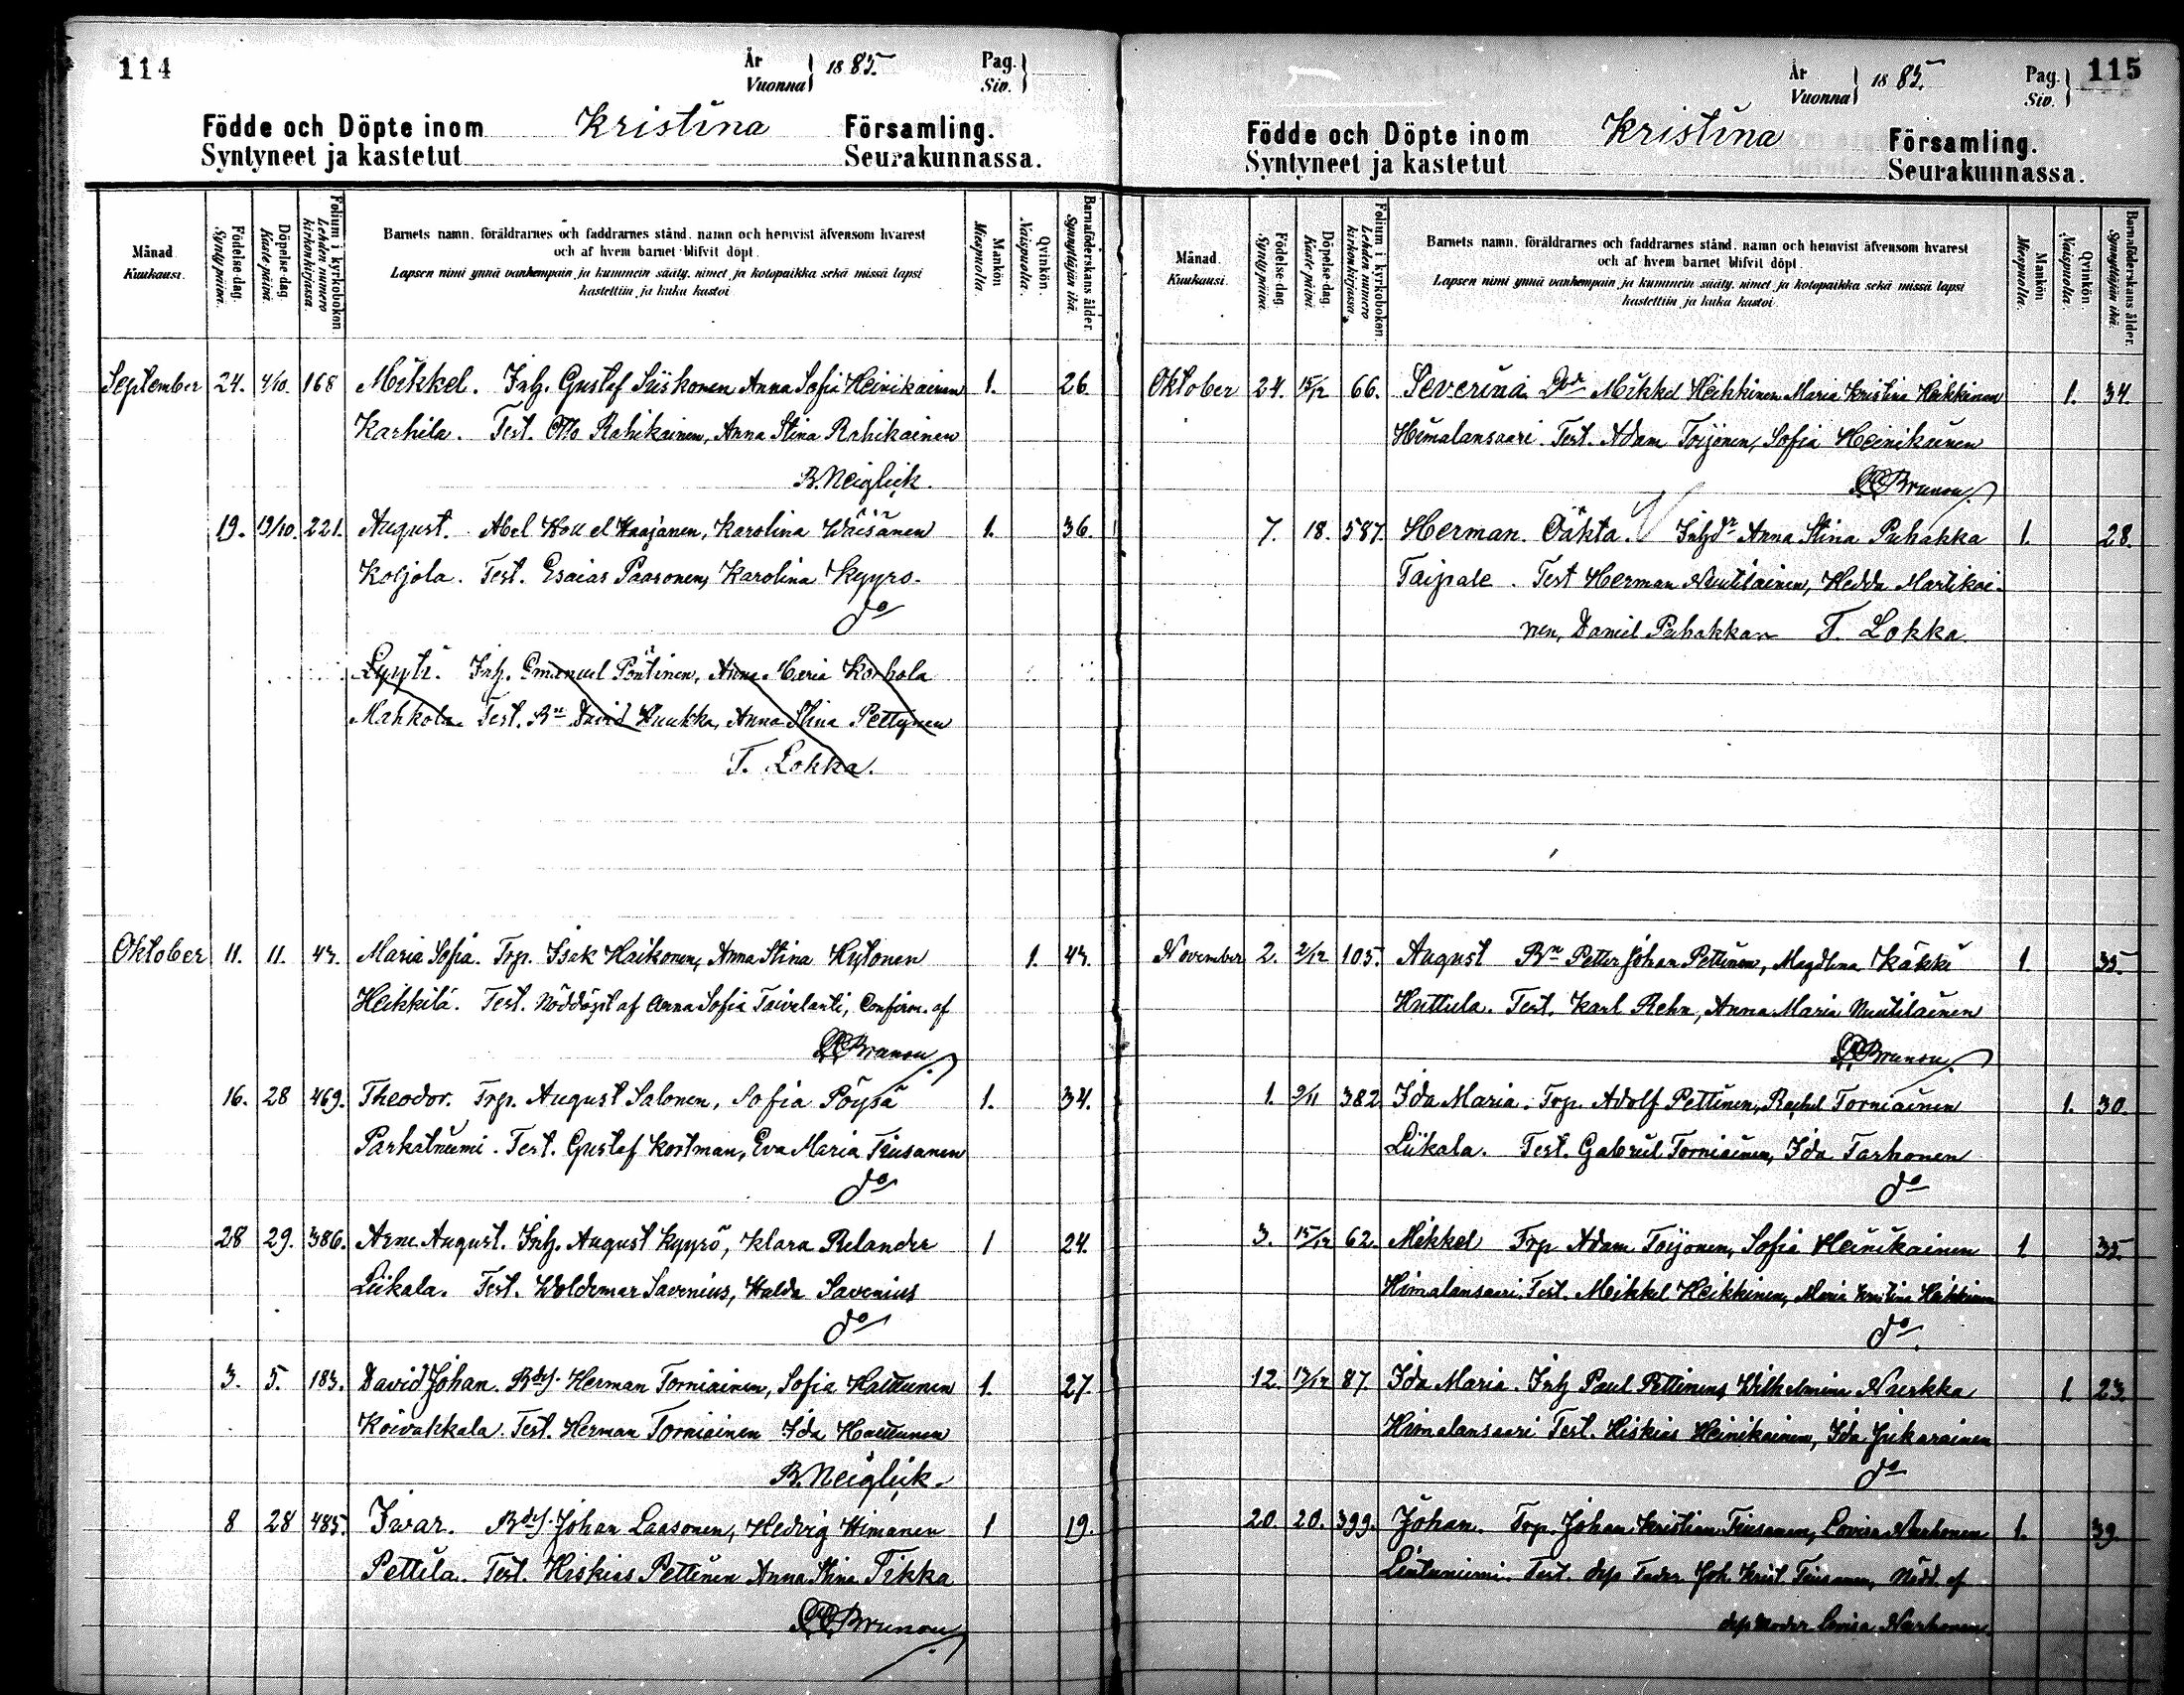 114
År
Vuonna
1885.
Pag.
Siv.
Födde och Döpte inom Kristina Församling.
Syntyneet ja kastetut Seurakunnassa.
Månad. Kuukausi.
Födelse-dag. Synty päivä.
Döpelse-dag. Kaste-päivä.
Folium i kyrkoboken. Lehden numero kirkonkirjassa.
Barnets namn, föräldrarnes och faddrarnes stånd, namn och hemvist äfvensom hvarest
och af hvem barnet blifvit döpt.
Lapsen nimi ynnä vanhempain ja kummein sääty, nimet ja kotopaikka sekä missä lapsi
kastettiin ja kuka kastoi
Mankön Miespuolia.
Qvinkön. Naispuolia.
Barnaföderskans ålder. Synnyttäjän ikä.
September 24. 4/10. 168 Mikkel. Inh. Gustaf Siiskonen Anna Sofia Heinikainen 1. 26.
Karhila. Test. Otto Rahikainen, Anna Stina Rahikainen
B. Neiglick.
19. 19/10. 221. August. Abel Haajanen, Karolina Wäisänen 1. 36.
Koljola. Test. Esaias Paasonen, Karolina Kyyrö.
do
Lyyti. Inh. Emanuel Pöntinen, Anna Maria Korhola
Mahkola Test. Bn David Kuukka, Anna Stina Pettinen
T. Lokka.
Oktober 11. 11. 43. Maria Sofia. Trp. Isak Haikonen, Anna Stina Hytönen 1. 43.
Heikkilä. Test. Nöddöpt af Anna Sofia Taivelanti, Confirm. af
Brunou
16. 28 469. Theodor. Trp. August Salonen, Sofia Pöysä 1. 34.
Parkatniemi. Test. Gustaf Kortman, Eva Maria Tiusanen
do
28 29. 386. Arne August. Inh. August Kyyrö, Klara Relander 1 24.
Liikala. Test. Woldemar Savenius, Halda Savenius
do
3. 5. 183. David Johan. Bds. Herman Torniainen, Sofia Haittunen 1. 27.
Koivakkala. Test. Herman Torniainen Ida Haittunen
B. Neiglick.
8 28 485. Iwar. Bds. Johan Laasonen, Hedvig Himanen 1 19.
Pettilä. Test. Hiskias Pettinen Anna Stina Tikka
Brunou
År
Vuonna
1885.
Pag.
Siv.
115
Födde och Döpte inom Kristina Församling.
Syntyneet ja kastetut Seurakunnassa.
Månad. Kuukausi.
Födelse-dag. Synty päivä.
Döpelse-dag. Kaste-päivä.
Folium i kyrkoboken. Lehden numero kirkonkirjassa.
Barnets namn, föräldrarnes och faddrarnes stånd, namn och hemvist äfvensom hvarest
och af hvem barnet blifvit döpt.
Lapsen nimi ynnä vanhempain ja kummein sääty, nimet ja kotopaikka sekä missä lapsi
kastettiin ja kuka kastoi.
Mankön Miespuolia.
Qvinkön. Naispuolia.
Barnaföderskans ålder. Synnyttäjän ikä.
Oktober 24. 15/12 66. Severina Mikkel Heikkinen Maria Kristina Heikkinen 1. 34.
Himalansaari. Test. Adam Toijonen, Sofia Heinikainen
Brunou
7. 18. 587. Herman. Oäkta. Inhdr Anna Stina Puhakka 1. 28.
Taipale. Test Herman Nuutilainen, Hedda Martikai-
nen, Daniel Puhakka T. Lokka.
November 2. 2/12 105. August Bn Petter Johan Pettinen, Magdlena Käkki 1. 35.
Huttula. Test. Karl Rehn, Anna Maria Nuutilainen
Brunou
1. 9/11 382 Ida Maria. Trp. Adolf Pettinen, Rachel Torniainen 1. 30.
Liikala. Test. Gabriel Torniainen, Ida Tarhonen
do
3. 15/12 62. Mikkel Trp Adam Toijonen, Sofia Heinikainen 1. 35.
Himalansaari. Test. Mikkel Heikkinen, Maria Kristina Heikkinen
do
12. 13/12 87. Ida Maria. Inh Paul Pettinen, Wilhelmina Nurkka 1. 23.
Himalansaari Test. Hiskias Heinikainen, Ida Jukarainen
do
20. 20. 399. Johan. Trp. Johan Kristian Tiusanen, Lovisa Narhonen 1. 39.
Lintuniemi. Test. dess Fader Joh. Krist. Tiusanen, Nödd. af
dess Moder Lovisa Narhonen.